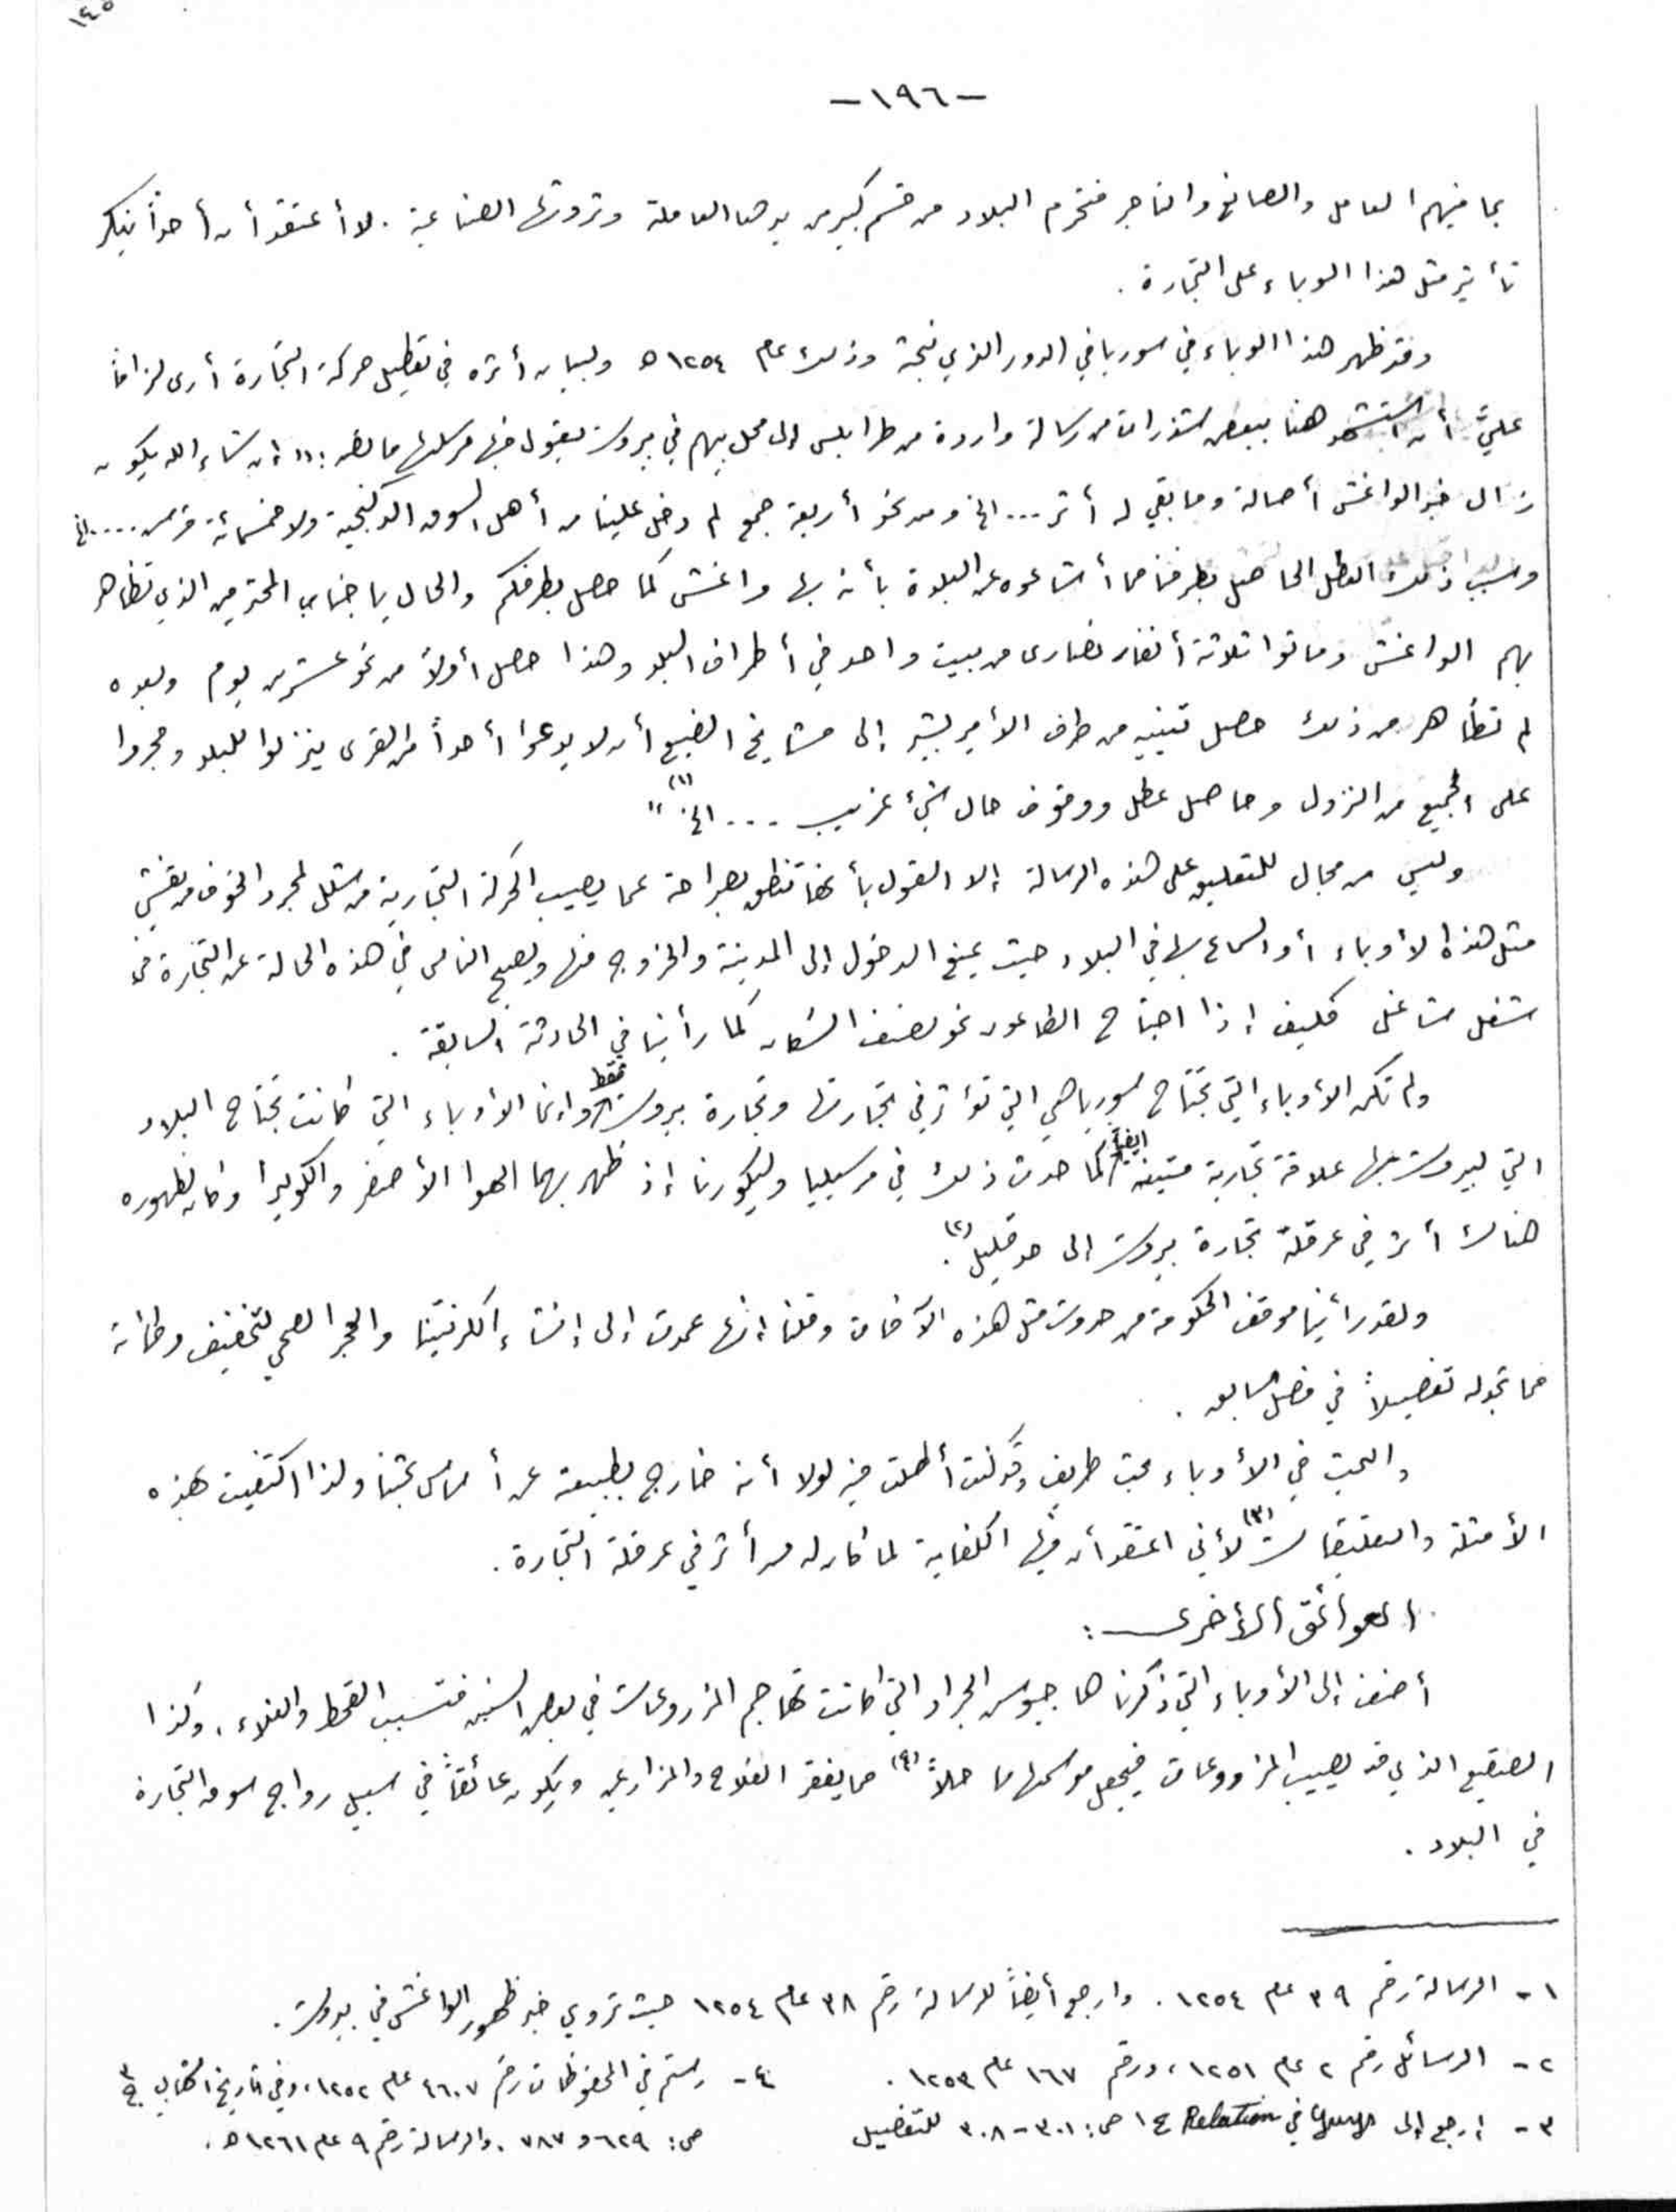 ١٤٥
-١٩٦-
بما فيهم العامل والصانع والتاجر فتحرم البلاد من قسم كبير من يدها العاملة وثروتها الصناعية. لا أعتقد أن أحداً ينكر
تأثير مثل هذا الوباء على التجارة.
وقد ظهر هذا الوباء في سوريا في الدور الذي نبحثه وذلك عام ١٢٥٤ ه ولبيان أثره في تعطيل حركة التجارة أرى لزاماً
عليَّ أن أستشهد هنا ببعض شذرات من رسالة واردة من طرابلس إلى محل بيهم في بيروت يقول فيها مرسلها ما نصه: "إن شاء الله يكون
زال خبر الواغش أصالة وما بقي له أثر... الخ ومن نحو أربعة جمع لم دخل علينا من أهل السوق الدكنجية ولا خمسمائة قرش.... الخ
وسبب ذلك العطل الحاصل بطرفنا مما أشاعوه عن البلدة بأنه بها واغش كما حصل بطرفكم والحال يا جناب المحترمين الذي تظاهر
بهم الواغش وماتوا ثلاثة أنفار نصارى من بيت واحد في أطراف البلد وهذا حصل أولاً من نحو عشرين يوم وبعده
لم تظاهر من ذلك حصل تنبيه من طرف الأمير بشير إلى مشايخ الضيع أن لا يدعوا أحداً من القرى ينزلوا للبلد وحجروا
على الجميع من النزول وحاصل عطل ووقوف حال شيئ غريب .... الخ (١)"
وليس من مجال للتعليق على هذه الرسالة إلا القول بأنها تنطق بصراحة عما يصيب الحركة التجارية من شلل لمجرد الخوف من تفشي
مثل هذه الأوباء أو السماع بها في البلاد حيث يمنع الدخول إلى المدينة والخروج منها ويصبح الناس في هذه الحالة عن التجارة في
شغل شاغل فكيف إذا اجتاح الطاعون نحو نصف السكان كما رأينا في الحادثة السابقة.
ولم تكن الأوباء التي تجتاح سوريا هي التي تؤثر في تجارتها وتجارة بيروت فقط وإنما الأوباء التي كانت تجتاح البلاد
التي لبيروت بها علاقة تجارية متينة أيضاً كما حدث ذلك في مرسيليا وليكورنا إذ ظهر بهما الهوا الأصفر والكوليرا وكان لظهوره
هناك أثر في عرقلة تجارة بيروت إلى حد قليل (٢).
ولقد رأينا موقف الحكومة من حدوث مثل هذه الآفات وقلنا إنها عمدت إلى إنشاء الكرنتينا والحجر الصحي لتخفيف وطأته
مما تجد له تفصيلاً في فصل سابق.
والبحث في الأوباء بحث طريف وقد كنت أطلت فيه لولا أنه خارج بطبيعته عن أساس بحثنا ولذا اكتفيت بهذه
الأمثلة والتعليقات (٣) لأني اعتقد أن فيها الكفاية لما كان له من أثر في عرقلة التجارة.
العوائق الأخرى:
أضف إلى الأوباء التي ذكرناها جيوش الجراد التي كانت تهاجم المزروعات في بعض السنين فتسبب القحط والغلاء. وكذا
الصقيع الذي قد يصيب المزروعات فيجعل موسمها ماحلاً (٤) مما يفقر الفلاح والمزارعين ويكون عائقاً في سبيل رواج سوق التجارة
في البلاد.
١- الرسالة رقم ٣٩ عام ١٢٥٤. وارجع أيضاً للرسالة رقم ٣٨ عام ١٢٥٤ حيث تروي خبر ظهور الواغش في بيروت.
٢- الرسائل رقم ٢ عام ١٢٥١، ورقم ١٦٧ عام ١٢٥٣.
٣- إرجع إلى Guys في Relation ج ١ ص: ٣٠١-٣٠٨ للتفصيل
٤- رستم في المحفوظات رقم ٤٦٠٧ عام ١٢٥٢، وفي تاريخ الشهابي ج ٣
ص: ٦٢٩ و ٧٨٧. والرسالة رقم ٩ عام ١٢٦١ ه.